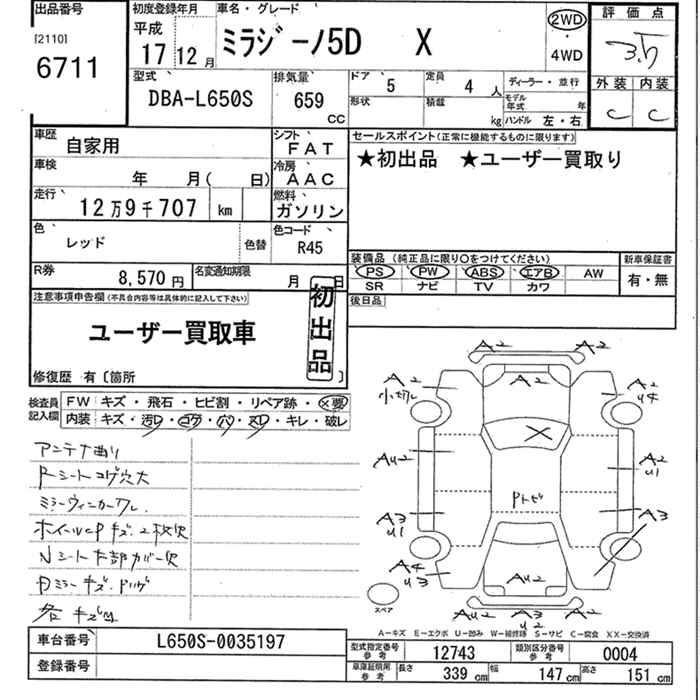 出品番号 初度登録年月 車名・グレード 評価点
[2110] 平成
6711 17 12月 ミラジーノ5D X 2WD 4WD 3.5
型式 排気量 ドア 定員 ディーラー・並行 外装 内装
DBA-L650S 659 CC 5 4人 モデル年式 年 C C
形状 積載 kg ハンドル 左・右
車歴 自家用 シフト FAT セールスポイント(正常に機能するものに限ります)
車検 年 月( 日) 冷房 AAC ★初出品 ★ユーザー買取り
走行 12万9千707 km 燃料 ガソリン
色 レッド 色替 色コード R45
装備品(純正品に限り○をつけてください) 新車保証書
R券 8,570円 名変通知期限 月 日 PS PW ABS エアB AW 有・無
SR ナビ TV カワ
注意事項申告欄(不具合内容等は具体的に記入して下さい) 初出品 後日品
ユーザー買取車
修復歴 有〔箇所 〕
検査員記入欄 FW キズ・飛石・ヒビ割・リペア跡・×要
内装 キズ・汚レ・コゲ・穴・スレ・キレ・破レ
アンテナ曲り
Rシートコゲ穴大
ミラーウィンカーワレ
ホイールCPキズ.2枚欠
Nシート下部カバー欠
Dミラーキズ.
各キズ凹
A2 A2
A2 A2
小切レ u4
X
Au2 A2
u1
Pトビ
A3 A3
u1
A4
u3 Au2
スペア Au2 A3 Au2
u2
A-キズ E-エクボ U-凹み W-補修跡 S-サビ C-腐食 XX-交換済
車台番号 L650S-0035197 型式指定番号 参考 12743 類別区分番号 参考 0004
登録番号 車庫証明用 参考 長さ 339cm 幅 147cm 高さ 151cm